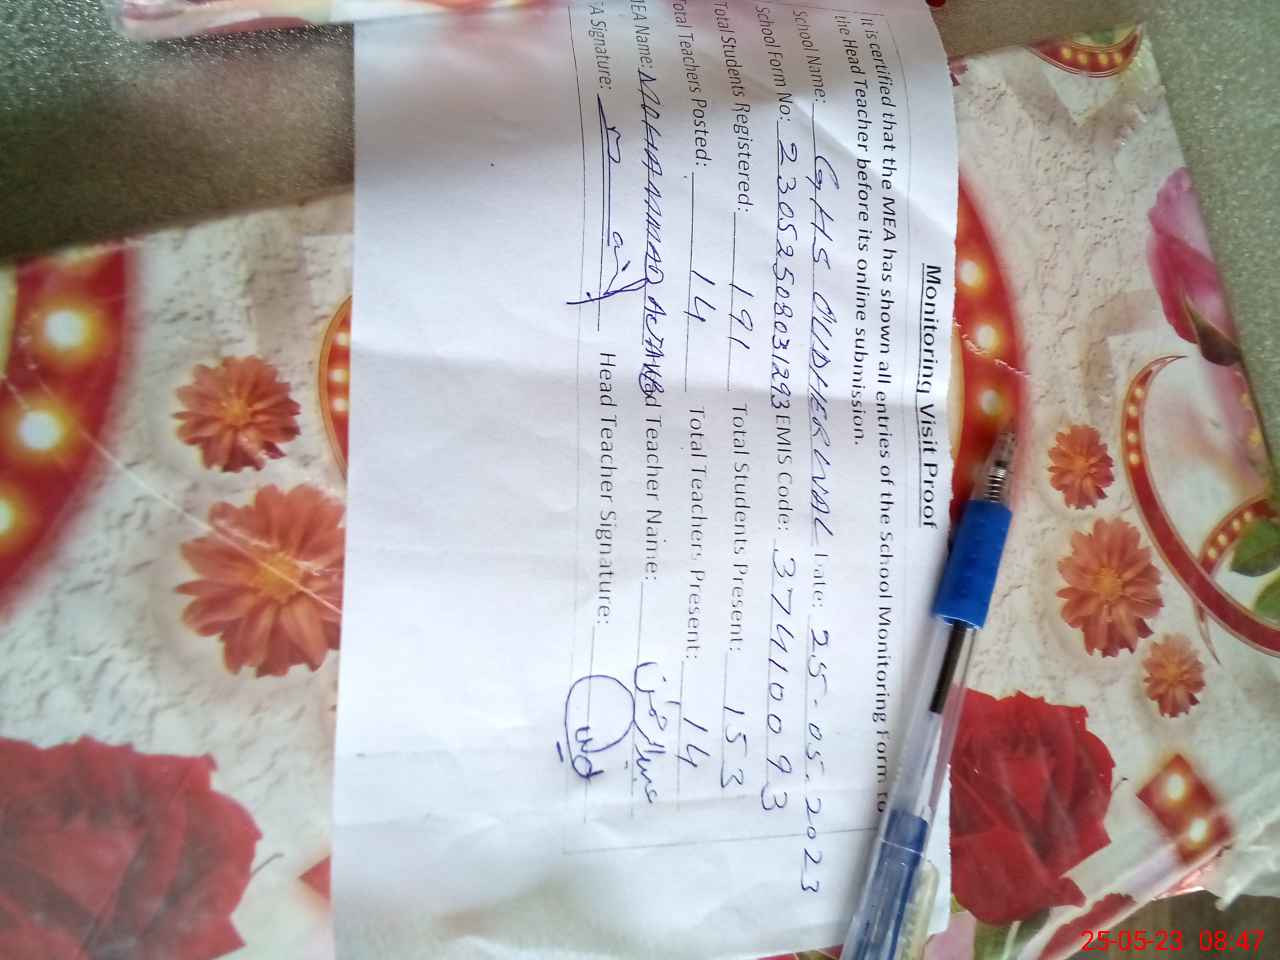 Monitoring Visit Proof
It is certified that the MEA has shown all entries of the School Monitoring Form to
the Head Teacher before its online submission.
School Name: GHS CUDHERWAL Date: 25-05-2023
School Form No: 23052508031293 EMIS Code: 37410093
Total Students Registered: 191 Total Students Present: 153
Total Teachers Posted: 14 Total Teachers Present: 14
MEA Name: MOHAMMAD Head Teacher Name:
MEA Signature: Head Teacher Signature:
25-05-23 08:47